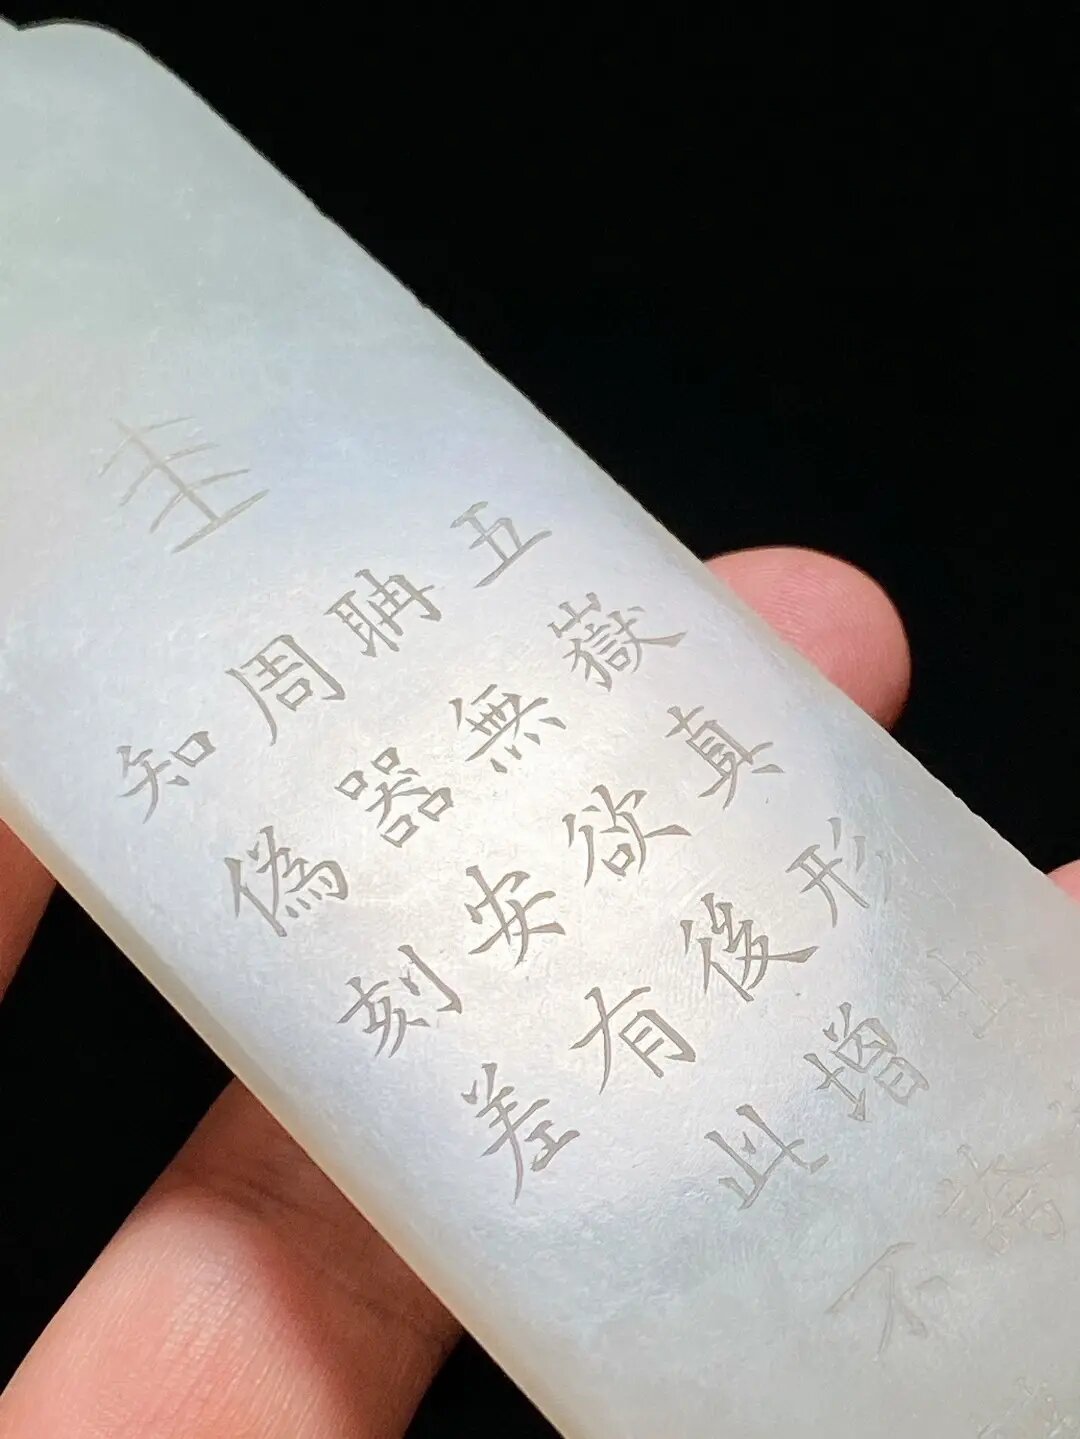 圭
五嶽真形
聃無欲後增
周器安有此不
知偽刻差